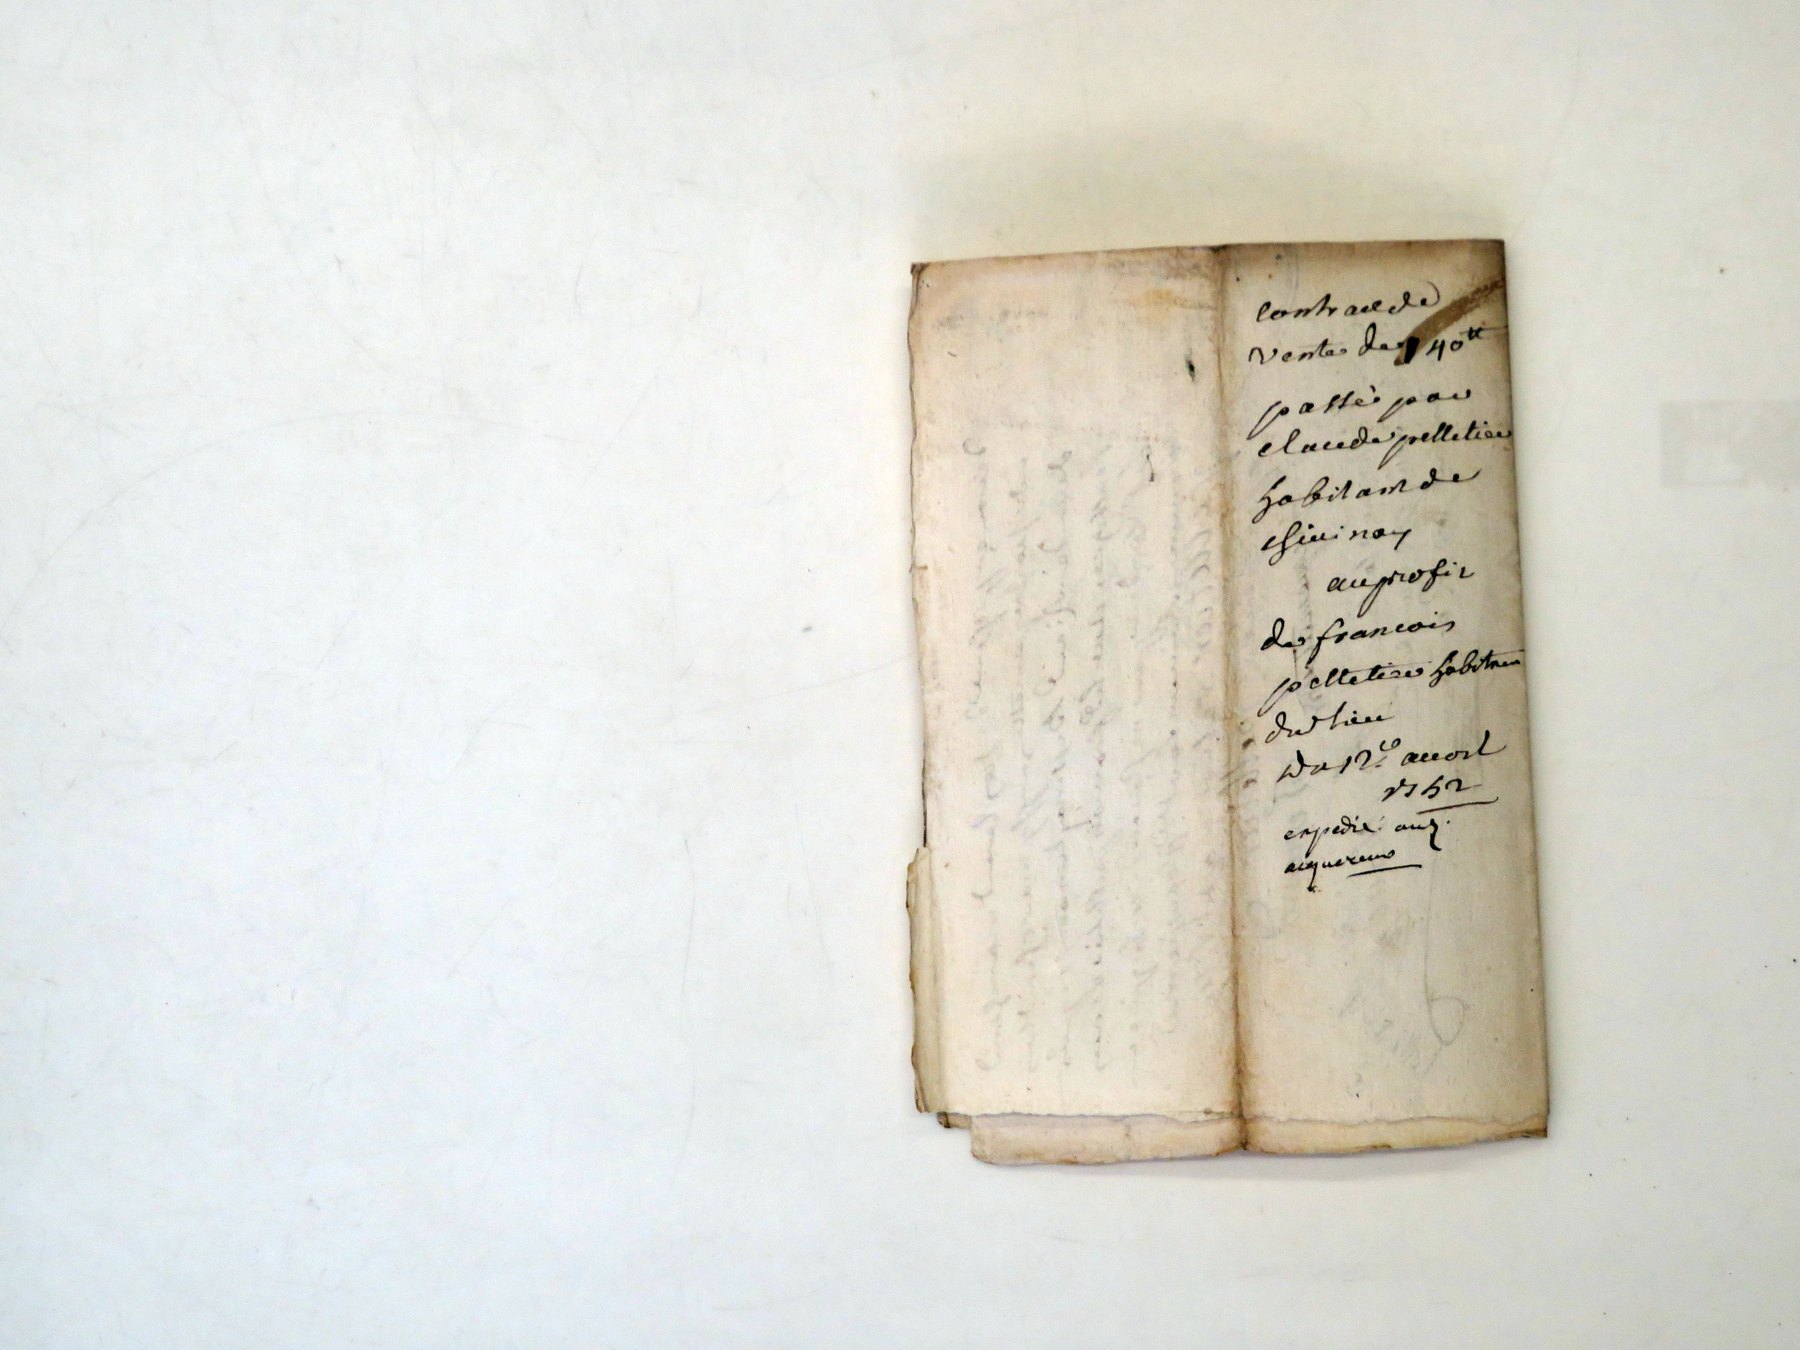 contract de
vente de 40tt
passé par
claude pelletier
habitant de
chivinay
au profit
de francois
pelletier habitant
du lieu
du 12e auost
1752
expedié aud.
acquereur